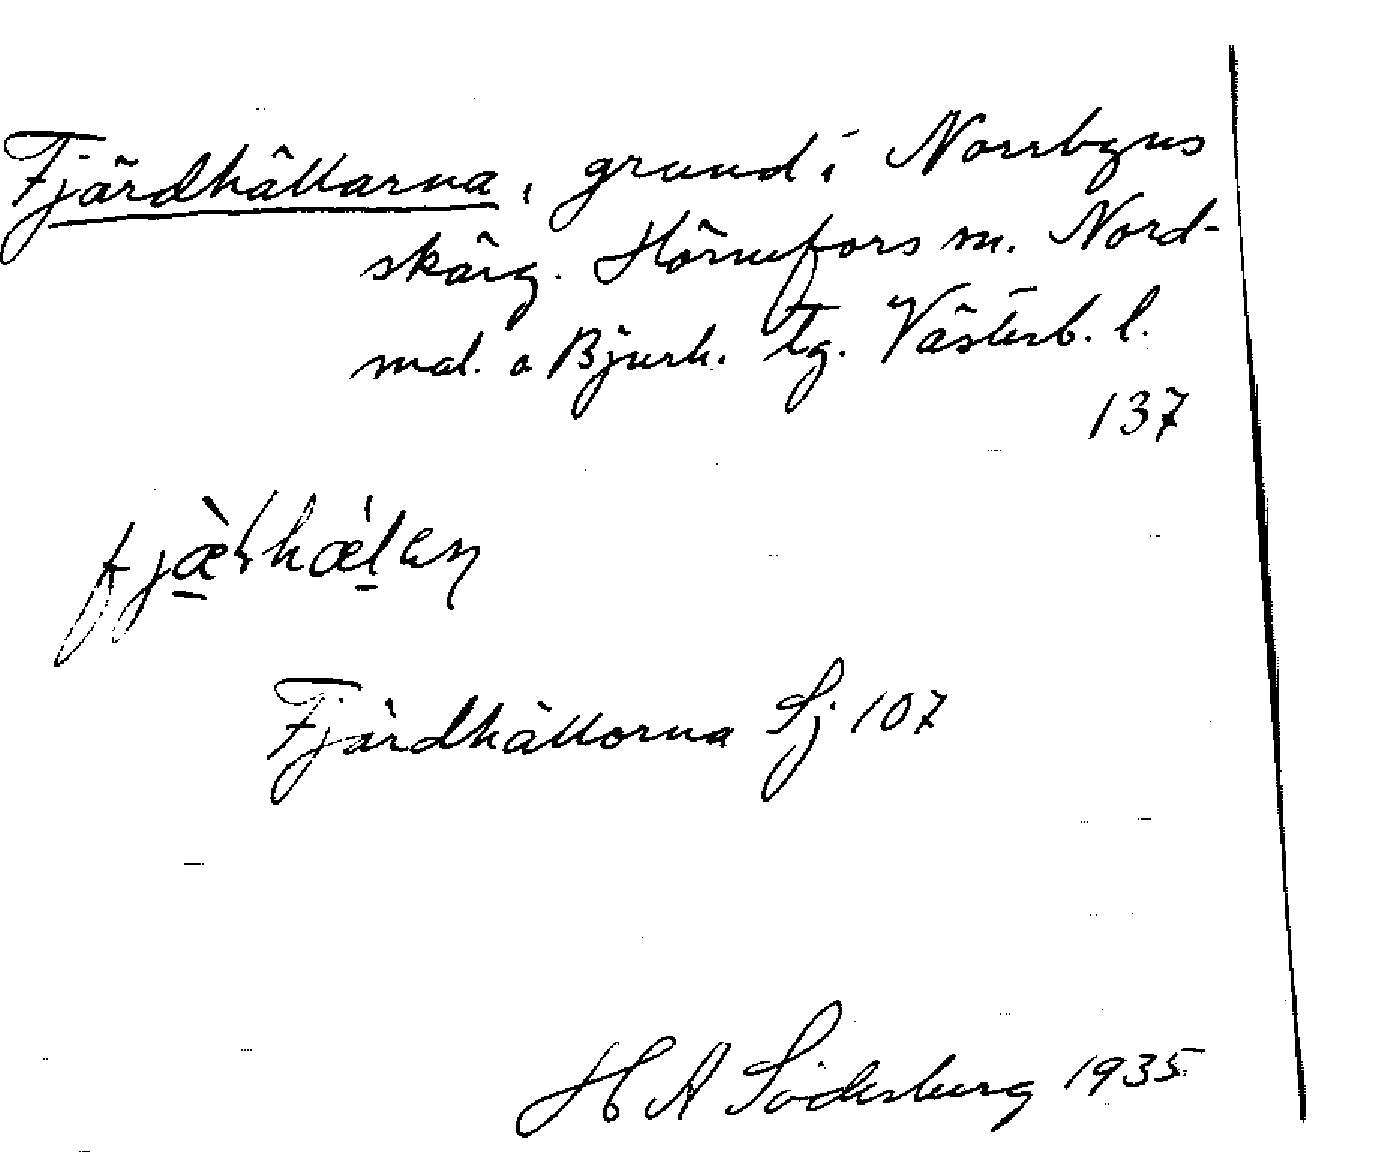 Fjärdhällarna, grund i Norrbyns
skärg. Hörnefors sn. Nord-
mal. o Bjurh. tg. Västerb. l.
137
Fjärdhällorna Sj 107
H A Söderberg 1935